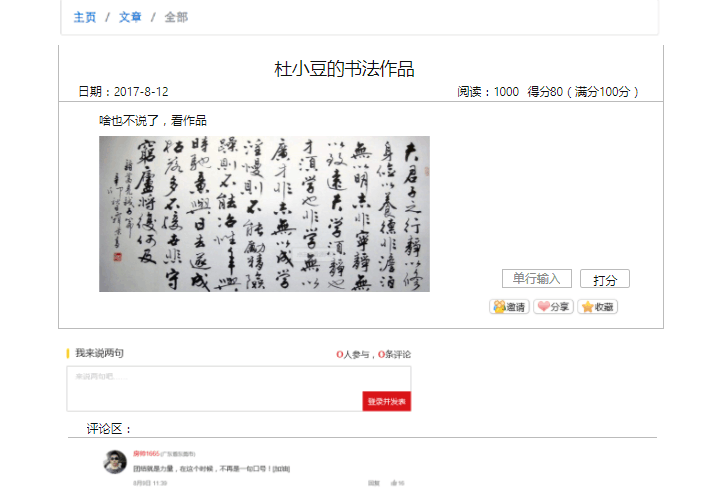 主页 / 文章 / 全部
杜小豆的书法作品
日期：2017-8-12
阅读：1000 得分80（满分100分）
啥也不说了，看作品
夫君子之行靜以修
身儉以養德非澹泊
無以明志非寧靜無
以致遠夫学須靜也
才須学也非学無以
廣才非志無以成学
淫慢則不能勵精險
躁則不能冶性年與
時馳意與日去遂成
枯落多不接世悲守
窮廬將復何及
單行输入 打分
邀请 分享 收藏
我来说两句
0人参与，0条评论
来说两句吧......
登录并发表
评论区：
团结就是力量，在这个时候，不再是一句口号！[加油]
8月9日 11:39
回复